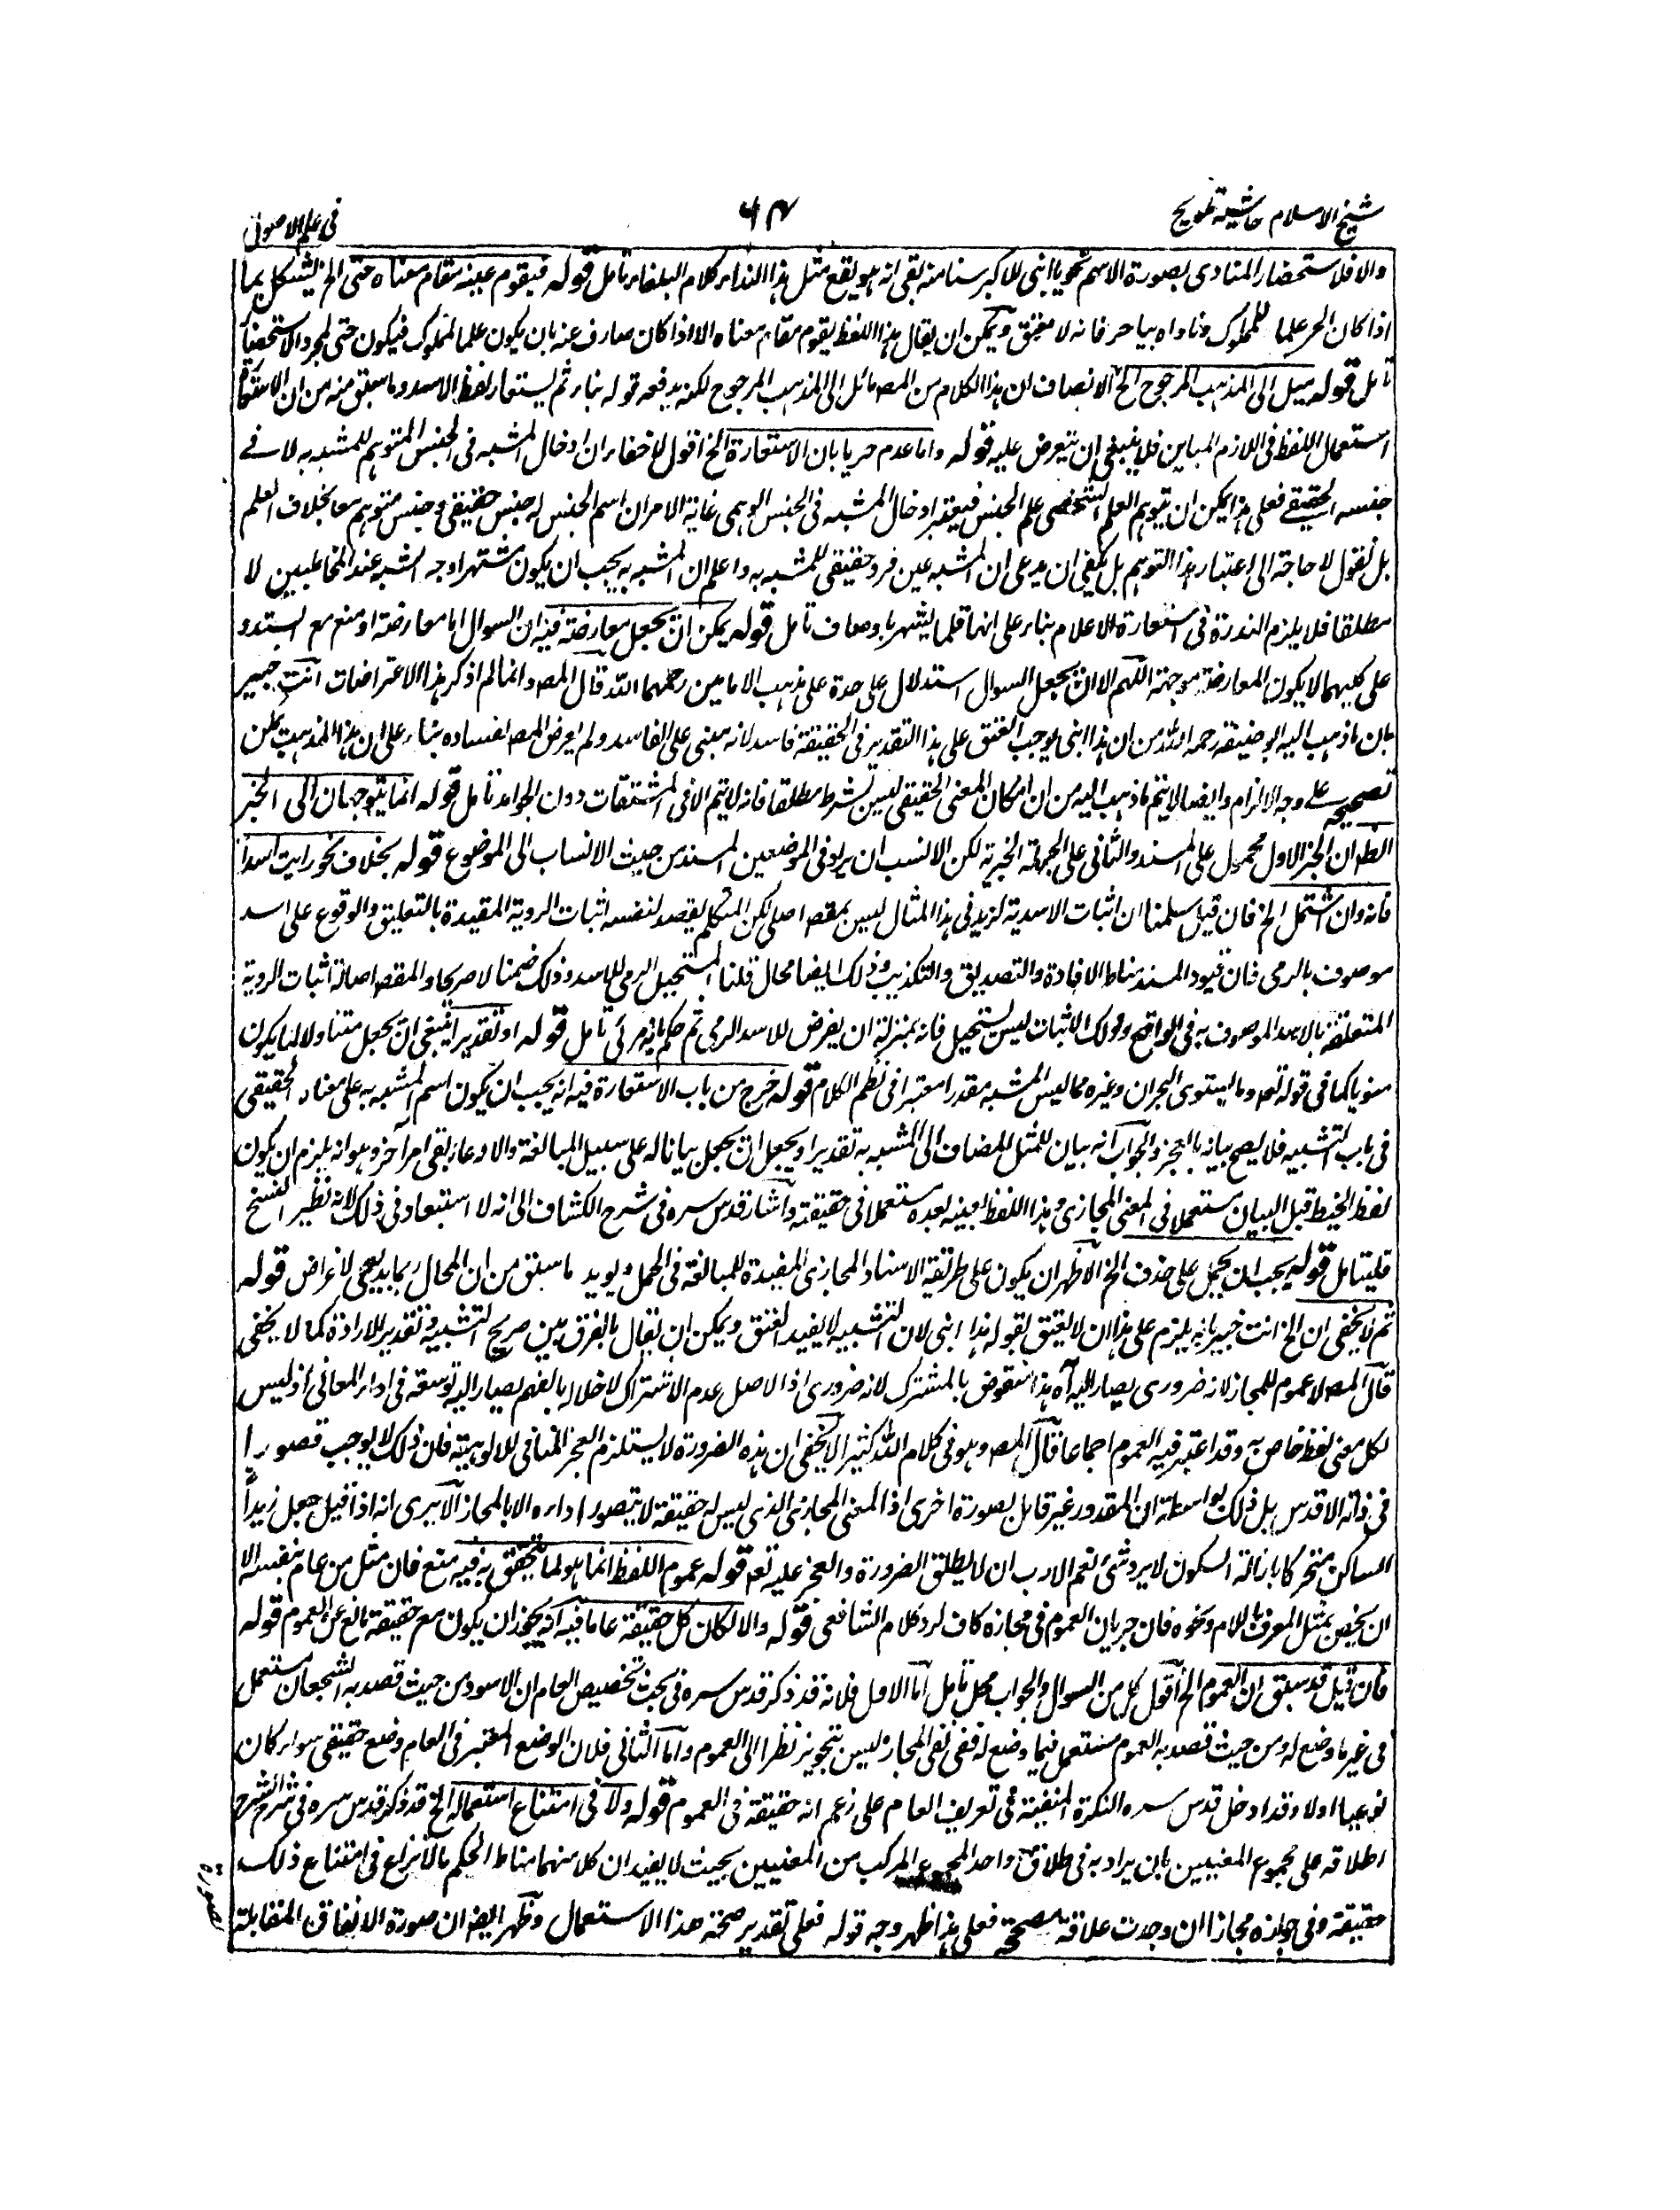 شيخ الاسلام حاشية تلويح
٦٤
فى علم الاصول
والا فلاستحضار المنادى بصورة الاسم نحو يا ابنى للاكبر سنا منه بقى انه هو يقع مثل هذا النداء كلام البلغاء تأمل قوله فيقوم عينه مقام معناه حتى الخ يشكل بما
اذا كان الحر علما للمملوك وناداه بيا حر فانه لا يعتق ويمكن ان يقال هذا اللفظ يقوم مقام معناه الا اذا كان صارف عنه بان يكون علما لمملوك فيكون حتى لمجرد الاستحضار
تأمل قوله ميل الى المذهب المرجوح الخ الانصاف ان هذا الكلام من المصـ مائل الى المذهب المرجوح لكنه يدفعه قوله بناء ثم يستعار لفظ الاسد وما سبق منه من ان الاستعارة
استعمال اللفظ فى اللازم المباين فلا ينبغى ان يتعرض عليه قوله واما عدم جريا بان الاستعارة الخ اقول لا خفاء ان ادخال المشبه فى الجنس المتوهم للمشبه به لا فى
جنسه الحقيقى فعلى هذا يمكن ان يتوهم العلم الشخصى علم الجنس فيعتبر ادخال المشبه فى الجنس الوهمى غاية الامر ان اسم الجنس له جنس حقيقى وجنس متوهم معا بخلاف العلم
بل نقول لا حاجة الى اعتبار هذا التوهم بل يكفى ان يدعى ان المشبه عين فرد حقيقى للمشبه به واعلم ان المشبه به يجب ان يكون مشتهرا وجه الشبه عند المخاطبين لا
مطلقا فلا يلزم الندرة فى استعارة الاعلام بناء على انها قلما يشتهر باوصاف تأمل قوله يمكن ان يجعل معارضة فيه ان السوال اما معارضة او منع مع السند و
على كليهما لا يكون المعارضة موجهة اللهم الا ان يجعل السوال استدلال على حدة على مذهب الامامين رحمهما الله قال المصـ وانما لم اذكر هذا الاعتراضات انت خبير
بان ما ذهب اليه ابو حنيفة رحمه الله من ان هذا ابنى يوجب العتق على هذا التقدير فى الحقيقة فاسد لانه مبنى على الفاسد ولم يعرض المصـ لفساده بناء على ان هذا المذهب يمكن
تصحيحه على وجه الالزام وايضا لا يتم ما ذهب اليه من ان امكان المعنى الحقيقى ليس بشرط مطلقا فانه لا يتم الا فى المشتقات دون الجوامد تأمل قوله انما يتوجهان الى الخبر
الظ ان الخبر الاول محمول على المسند والثانى على الجملة الخبرية لكن الانسب ان يراد فى الموضعين المسند من حيث الانساب الى الموضوع قوله بخلاف نحو رايت اسدا
فانه وان اشتمل الخ فان قيل سلمنا ان اثبات الاسدية لزيد فى هذا المثال ليس بمقصـ اصلى لكن المتكلم يقصد لنفسه اثبات الروية المقيدة بالتعليق والوقوع على اسد
موصوف بالرمى فان قيود المسند مناط الافادة والتصديق والتكذيب وذلك ايضا محال قلنا المستحيل الرمى للاسد وذلك ضمنا لا صريحا والمقصـ اصالة اثبات الروية
المتعلقة بالاسد الموصوف به فى الواقع وذلك الاثبات ليس بمستحيل فانه بمنزلة ان يفرض للاسد الرمى ثم حكم بانه مرئى تأمل قوله او تقديرا ينبغى ان يجعل متناولا لما يكون
منويا كما فى قوله تعـ وما يستوى البحران وغيره مما ليس المشبه مقدرا معتبرا فى نظم الكلام قوله خرج من باب الاستعارة فيه انه يجب ان يكون اسم المشبه به على معناه الحقيقى
فى باب التشبيه فلا يصح بيانه بالفجر والجواب انه بيان للمثل المضاف الى المشبه به تقديرا ويجعل ان يجعل بيانا له على سبيل المبالغة والادعاء بقى امر آخر وهو انه يلزم ان يكون
لفظ الخيط قبل البيان مستعملا فى المعنى المجازى وهذا اللفظ بعينه بعده مستعملا فى حقيقته واشار قدس سره فى شرح الكشاف الى انه لا استبعاد فى ذلك لانه نظير النسخ
فليتأمل قوله يجب ان يحمل على حذف الخ الاظهر ان يكون على طريقة الاسناد المجازى المفيدة للمبالغة فى الحمل ويويد ما سبق من ان المحال ربما يدعى لاغراض قوله
ثم لا يخفى ان الخ انت خبير بانه يلزم على هذا ان لا يعتق بقوله هذا ابنى لان التشبيه لا يفيد العتق ويمكن ان يقال بالفرق بين صريح التشبيه وتقدير الارادة كما لا يخفى
قال المصـ لا عموم للمجاز لانه ضرورى يصار اليه آه هذا منقوض بالمشترك لانه ضرورى اذ الاصل عدم الاشتراك لاخلاله بالفهم يصار اليه توسعة فى اداء المعانى اذ ليس
لكل معنى لفظ خاص به وقد اعتبر فيه العموم اجماعا قال المصـ وهو فى كلام الله كثير الا يخفى ان هذه الضرورة لا يستلزم العجز المنافى للالوهية فان ذلك لا يوجب قصورا
فى ذاته الاقدس بل ذلك بواسطة ان المقدور غير قابل بصورة اخرى اذ المعنى المجازى الذى ليس له حقيقة لا يتصور اداءه الا بالمجاز الا يرى انه اذا قيل جعل زيدا
الساكن متحركا بازالة السكون لا يرد شئ نعم الادب ان لا يطلق الضرورة والعجز عليه تعـ قوله عموم اللفظ انما هو لما يتحقق به فيه منع فان مثل من عام بنفسه الا
ان يخص بمثل المعرف باللام ونحوه فان جريان العموم فى مجازه كاف لرد كلام الشافعى قوله والا لكان كل حقيقة عاما فيه انه يجوز ان يكون مع حقيقة مانع عن العموم قوله
فان قيل قد سبق ان العموم الخ اقول كل من السوال والجواب محل تأمل اما الاول فلانه قد ذكر قدس سره فى بحث تخصيص العام ان الاسود من حيث قصد به الشجعان مستعمل
فى غير ما وضع له ومن حيث قصد به العموم مستعمل فيما وضع له ففى نفى المجاز ليس بتجويز نظرا الى العموم واما الثانى فلان الوضع المعتبر فى العام وضع حقيقى سواء كان
نوعيا اولا وقد ادخل قدس سره النكرة المنفية فى تعريف العام على زعم انه حقيقة فى العموم قوله ولا فى امتناع استعماله الخ قد ذكر قدس سره فى شرح الشرح
اطلاقه على مجموع المعنيين بان يراد به فى اطلاق واحد المجموع المركب من المعنيين بحيث لا يفيد ان كلا منهما مناط الحكم مالا نزاع فى امتناع ذلك
حقيقة وفى جوازه مجازا ان وجدت علاقة مصححة فعلى هذا ظهر وجه قوله فعلى تقدير صحة هذا الاستعمال وظهر ايضـ ان صورة الاتفاق المتقابلة